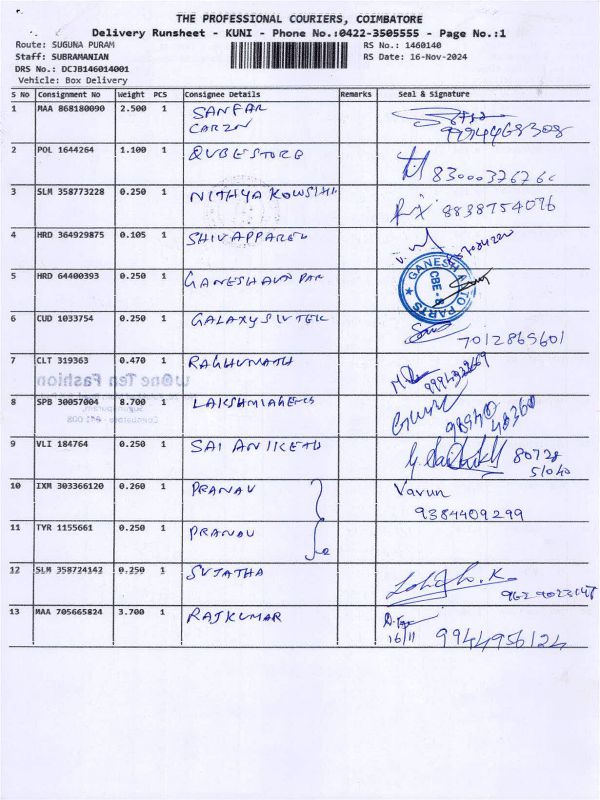 THE PROFESSIONAL COURIERS, COIMBATORE
Delivery Runsheet - KUNI - Phone No.:0422-3505555 - Page No.:1
Route: SUGUNA PURAM RS No.: 1460140
Staff: SUBRAMANIAN RS Date: 16-Nov-2024
DRS No.: DCJB146014001
Vehicle: Box Delivery
S No Consignment No Weight PCS Consignee Details Remarks Seal & Signature
1 MAA 868180090 2.500 1 SANFAR
CARZN 9994468308
2 POL 1644264 1.100 1 QUBESTORE
3 SLM 358773228 0.250 1 NITHYA 8838754096
4 HRD 364929875 0.105 1 SHIV APPAREL
5 HRD 64400393 0.250 1 GANESH PAR
GANESH AUTO PARTS
CBE - 8
6 CUD 1033754 0.250 1 GALAXY 7012865601
7 CLT 319363 0.470 1 RAGHUNATH
One Ten Fashion
8 SPB 30057004 8.700 1 LAKSHMI
Coimbatore - 641 008
9 VLI 184764 0.250 1 SAI ANIKETH 80728
51040
10 IXM 303366120 0.260 1 PRANAV Varun
9384409299
11 TYR 1155661 0.250 1 PRANAV
12 SLM 358724142 0.250 1 SUJATHA
13 MAA 705665824 3.700 1 RAJKUMAR
16/11 9944956124